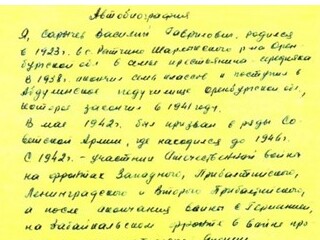 Автобиография
Я, Сарычев Василий Гаврилович, родился
в 1923 г. в с. Ратчино Шарлыкского р-на Орен-
бургской обл. в семье крестьянина-середняка
В 1938г. окончил семь классов и поступил в
Абдулинское педучилище Оренбургской обл.,
которое закончил в 1941 году.
В мае 1942г. был призван в ряды Со-
ветской Армии, где находился до 1946г.
С 1942г. - участник Отечественной войны
на фронтах Западного, Прибалтийского,
Ленинградского и Второго Прибалтийского,
а после окончания войны с Германией,
на Забайкальском фронте в войне про-